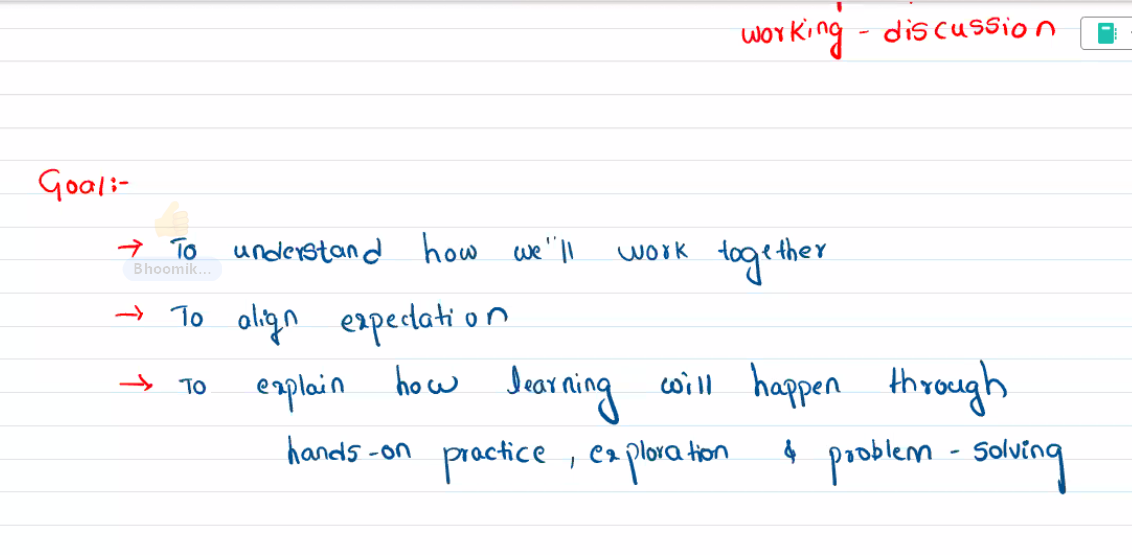 working - discussion
Goal:-
→ To understand how we'll work together
Bhoomik...
→ To align expectation
→ To explain how learning will happen through
hands-on practice, exploration & problem - solving